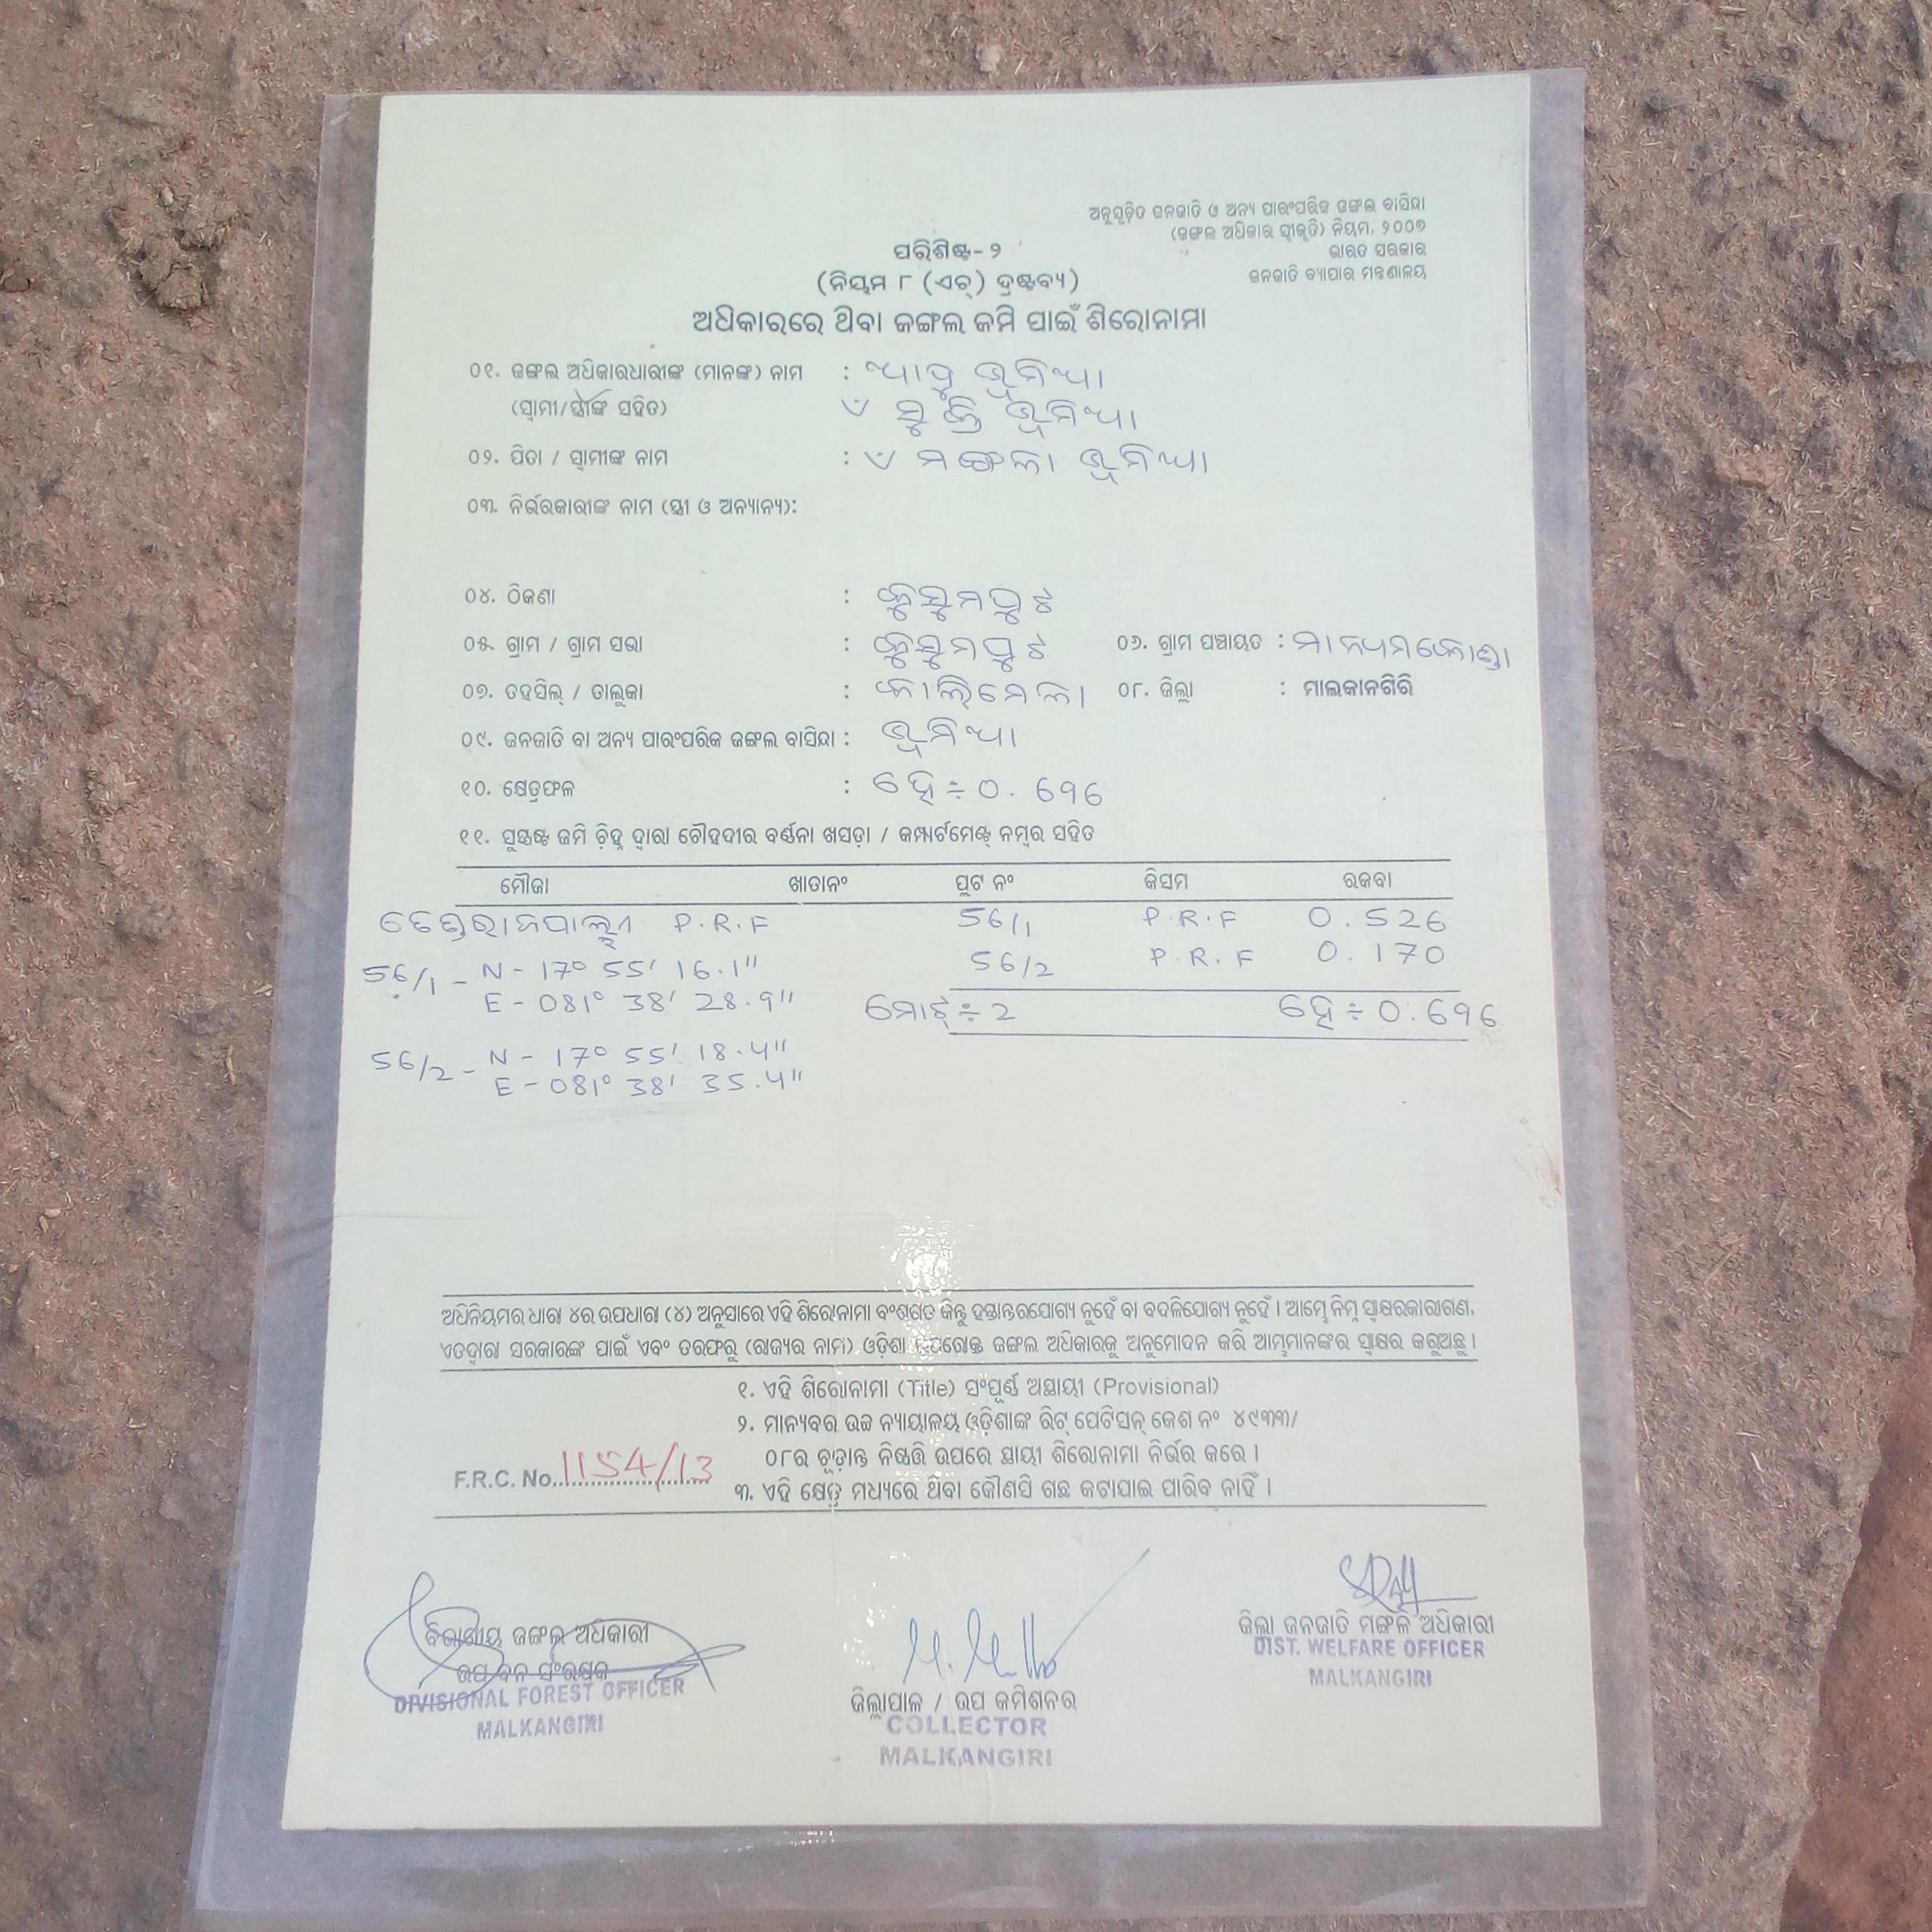 ଅନୁସୂଚିତ ଜନଜାତି ଓ ଅନ୍ୟ ପାରଂପରିକ ଜଙ୍ଗଲ ବାସିନ୍ଦା
(ଜଙ୍ଗଲ ଅଧିକାର ସ୍ୱୀକୃତି) ନିୟମ, ୨୦୦୭
ଭାରତ ସରକାର
ଜନଜାତି ବ୍ୟାପାର ମନ୍ତ୍ରଣାଳୟ
ପରିଶିଷ୍ଟ-୨
(ନିୟମ ୮ (ଏଚ୍) ଦ୍ରଷ୍ଟବ୍ୟ)
ଅଧିକାରରେ ଥିବା ଜଙ୍ଗଲ ଜମି ପାଇଁ ଶିରୋନାମା
୦୧. ଜଙ୍ଗଲ ଅଧିକାରଧାରୀଙ୍କ (ମାନଙ୍କ) ନାମ : ଭୂମିଆ
(ସ୍ୱାମୀ/ସ୍ତ୍ରୀଙ୍କ ସହିତ) ଭୂମିଆ
୦୨. ପିତା / ସ୍ୱାମୀଙ୍କ ନାମ : ମଙ୍ଗଳା ଭୂମିଆ
୦୩. ନିର୍ଭରକାରୀଙ୍କ ନାମ (ସ୍ତ୍ରୀ ଓ ଅନ୍ୟାନ୍ୟ):
୦୪. ଠିକଣା : କୁସୁମପୁଟ
୦୫. ଗ୍ରାମ / ଗ୍ରାମ ସଭା : କୁସୁମପୁଟ ୦୬. ଗ୍ରାମ ପଞ୍ଚାୟତ : ମାନ୍ୟମକୋଣ୍ଡା
୦୭. ତହସିଲ୍ / ତାଲୁକା : କାଲିମେଲା ୦୮. ଜିଲ୍ଲା : ମାଲକାନଗିରି
୦୯. ଜନଜାତି ବା ଅନ୍ୟ ପାରଂପରିକ ଜଙ୍ଗଲ ବାସିନ୍ଦା : ଭୂମିଆ
୧୦. କ୍ଷେତ୍ରଫଳ : ହେ÷0.696
୧୧. ସୁସ୍ପଷ୍ଟ ଜମି ଚିହ୍ନ ଦ୍ୱାରା ଚୌହଦୀର ବର୍ଣ୍ଣନା ଖସଡ଼ା / କମ୍ପାର୍ଟମେଣ୍ଟ୍ ନମ୍ବର ସହିତ
ମୌଜା ଖାତାନଂ ପ୍ଲଟ ନଂ କିସମ ରକବା
P.R.F 56/1 P.R.F 0.526
56/1 - N - 17° 55' 16.1" 56/2 P.R.F 0.170
E - 081° 38' 28.9" ମୋଟ୍÷2 ହେ÷0.696
56/2 - N - 17° 55' 18.4"
E - 081° 38' 35.4"
ଅଧିନିୟମର ଧାରା ୪ର ଉପଧାରା (୪) ଅନୁସାରେ ଏହି ଶିରୋନାମା ବଂଶଗତ କିନ୍ତୁ ହସ୍ତାନ୍ତରଯୋଗ୍ୟ ନୁହେଁ ବା ବଦଳିଯୋଗ୍ୟ ନୁହେଁ । ଆମ୍ଭେ ନିମ୍ନ ସ୍ୱାକ୍ଷରକାରୀଗଣ,
ଏତଦ୍ୱାରା ସରକାରଙ୍କ ପାଇଁ ଏବଂ ତରଫରୁ (ରାଜ୍ୟର ନାମ) ଓଡ଼ିଶା ଉପରୋକ୍ତ ଜଙ୍ଗଲ ଅଧିକାରକୁ ଅନୁମୋଦନ କରି ଆମ୍ଭମାନଙ୍କର ସ୍ୱାକ୍ଷର କରୁଅଛୁ ।
୧. ଏହି ଶିରୋନାମା (Title) ସଂପୂର୍ଣ୍ଣ ଅସ୍ଥାୟୀ (Provisional)
୨. ମାନ୍ୟବର ଉଚ୍ଚ ନ୍ୟାୟାଳୟ ଓଡ଼ିଶାଙ୍କ ରିଟ୍ ପେଟିସନ୍ କେଶ ନଂ ୪୯୩୩/
୦୮ର ଚୂଡ଼ାନ୍ତ ନିଷ୍ପତ୍ତି ଉପରେ ସ୍ଥାୟୀ ଶିରୋନାମା ନିର୍ଭର କରେ ।
F.R.C. No. 1154/13
୩. ଏହି କ୍ଷେତ୍ର ମଧ୍ୟରେ ଥିବା କୌଣସି ଗଛ କଟାଯାଇ ପାରିବ ନାହିଁ ।
ବିଭାଗୀୟ ଜଙ୍ଗଲ ଅଧିକାରୀ
ଉପ ବନ ସଂରକ୍ଷକ
DIVISIONAL FOREST OFFICER
MALKANGIRI
ଜିଲ୍ଲାପାଳ / ଉପ କମିଶନର
COLLECTOR
MALKANGIRI
ଜିଲ୍ଲା ଜନଜାତି ମଙ୍ଗଳ ଅଧିକାରୀ
DIST. WELFARE OFFICER
MALKANGIRI